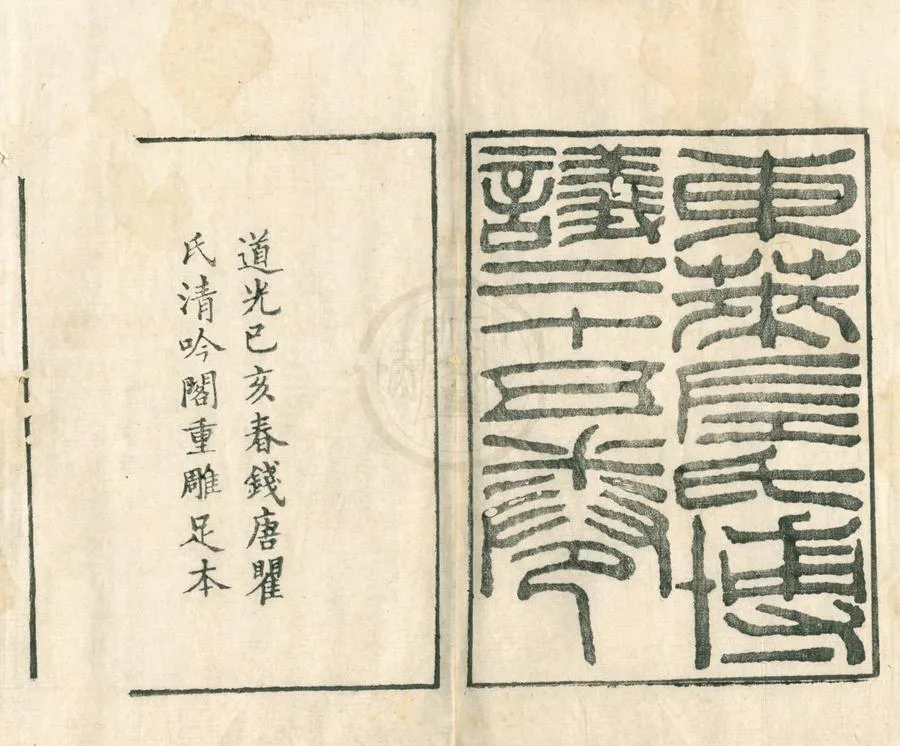 東萊左氏博
議二十五卷
道光己亥春錢唐瞿
氏清吟閣重雕足本